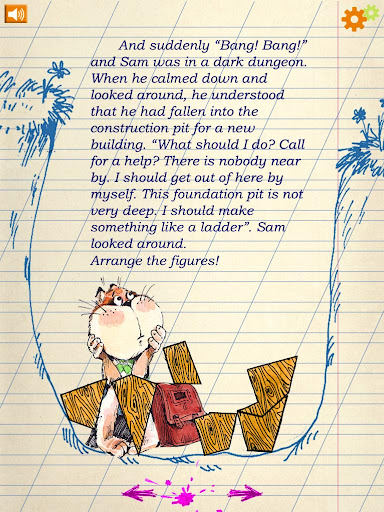 And suddenly “Bang! Bang!”
and Sam was in a dark dungeon.
When he calmed down and
looked around, he understood
that he had fallen into the
construction pit for a new
building. “What should I do? Call
for a help? There is nobody near
by. I should get out of here by
myself. This foundation pit is not
very deep. I should make
something like a ladder”. Sam
looked around.
Arrange the figures!